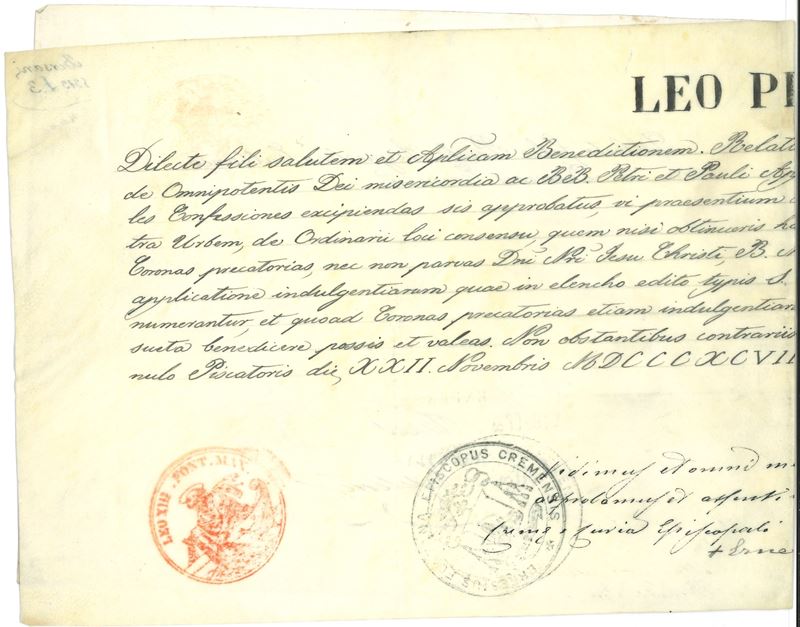 LEO P
Dilecte fili salutem et Aplicam Benedictionem. Relat
de Omnipotentis Dei misericordia ac BB. Petri et Pauli Ap
les Confessiones excipiendas sis approbatus, vi praesentium
tra Urbem, de Ordinarii loci consensu, quem nisi obtinueris h
Coronas precatorias, nec non parvas Dni Nri Iesu Christi, B.
applicatione indulgentiarum quae in elencho edito typis S.
numerantur, et quoad Coronas precatorias etiam indulgentiar
sueta benedicere possis et valeas. Non obstantibus contrariis
nulo Piscatoris die, XXII. Novembris MDCCCXCVII
LEO XIII PONT. MAX.
EPISCOPUS CREMENSIS
Vidimus et
approbamus et assenti
Curia Episcopali
+ Erne